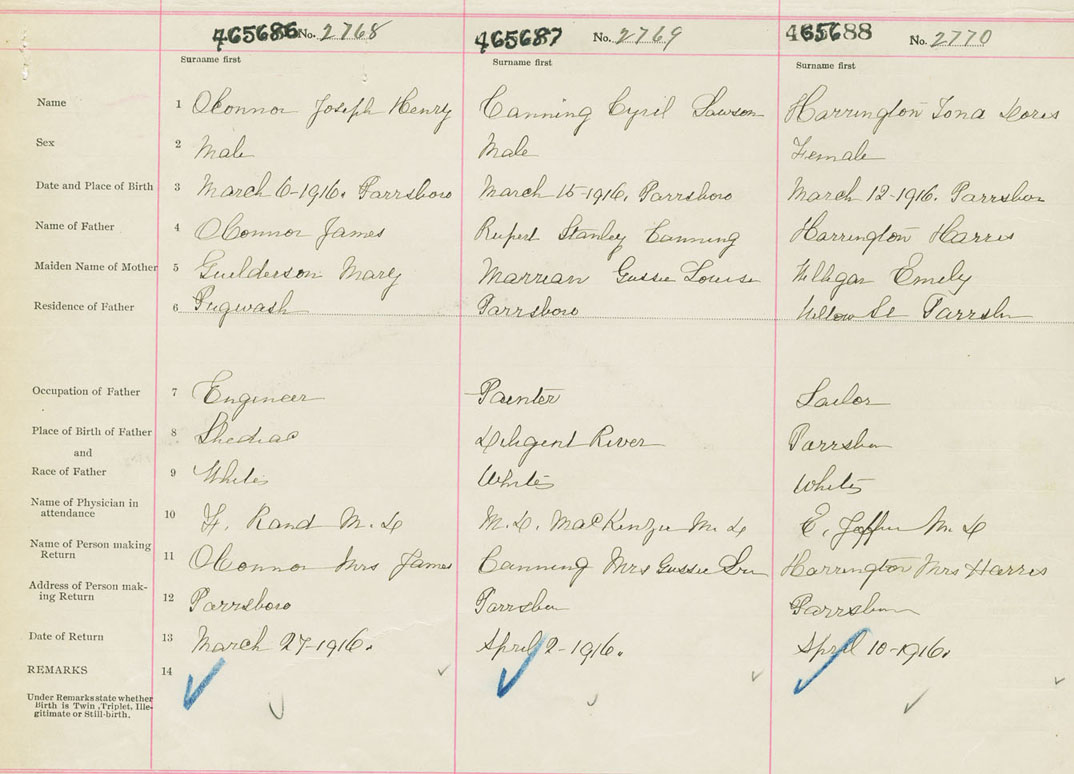 465686 No. 2768 465687 No. 2769 465688 No. 2770
Surname first Surname first Surname first
Name 1 OConnor Joseph Henry Canning Cyril Lawson Harrington Iona Doris
Sex 2 Male Male Female
Date and Place of Birth 3 March 6-1916. Parrsboro March 15-1916. Parrsboro March 12-1916. Parrsboro
Name of Father 4 OConnor James Rupert Stanley Canning Harrington Harris
Maiden Name of Mother 5 Guilderson Mary Marrian Gussie Louise Milligan Emily
Residence of Father 6 Pugwash Parrsboro Willow St Parrsboro
Occupation of Father 7 Engineer Painter Sailor
Place of Birth of Father 8 Shediac Diligent River Parrsboro
and
Race of Father 9 White White White
Name of Physician in
attendance 10 F. Rand M.D M.D. MacKenzie M.D E. M.D
Name of Person making
Return 11 OConnor Mrs James Canning Mrs Gussie Harrington Mrs Harris
Address of Person mak-
ing Return 12 Parrsboro Parrsboro Parrsboro
Date of Return 13 March 27-1916. April 2-1916. April 10-1916.
REMARKS 14
Under Remarks state whether
Birth is Twin, Triplet, Ille-
gitimate or Still-birth.